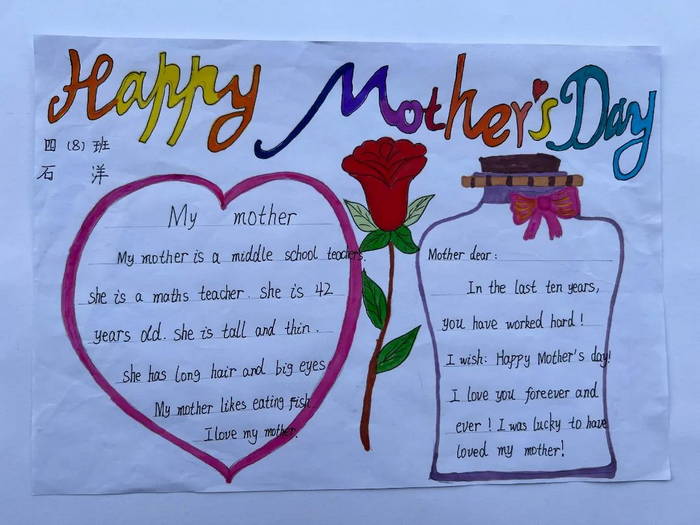 Happy Mother's Day
四（8）班
石 洋
My mother
My mother is a middle school teachers.
she is a maths teacher. She is 42
years old. She is tall and thin.
She has long hair and big eyes
My mother likes eating fish.
I love my mother.
Mother dear:
In the last ten years,
you have worked hard!
I wish: Happy Mother's day!
I love you foreever and
ever! I was lucky to have
loved my mother!